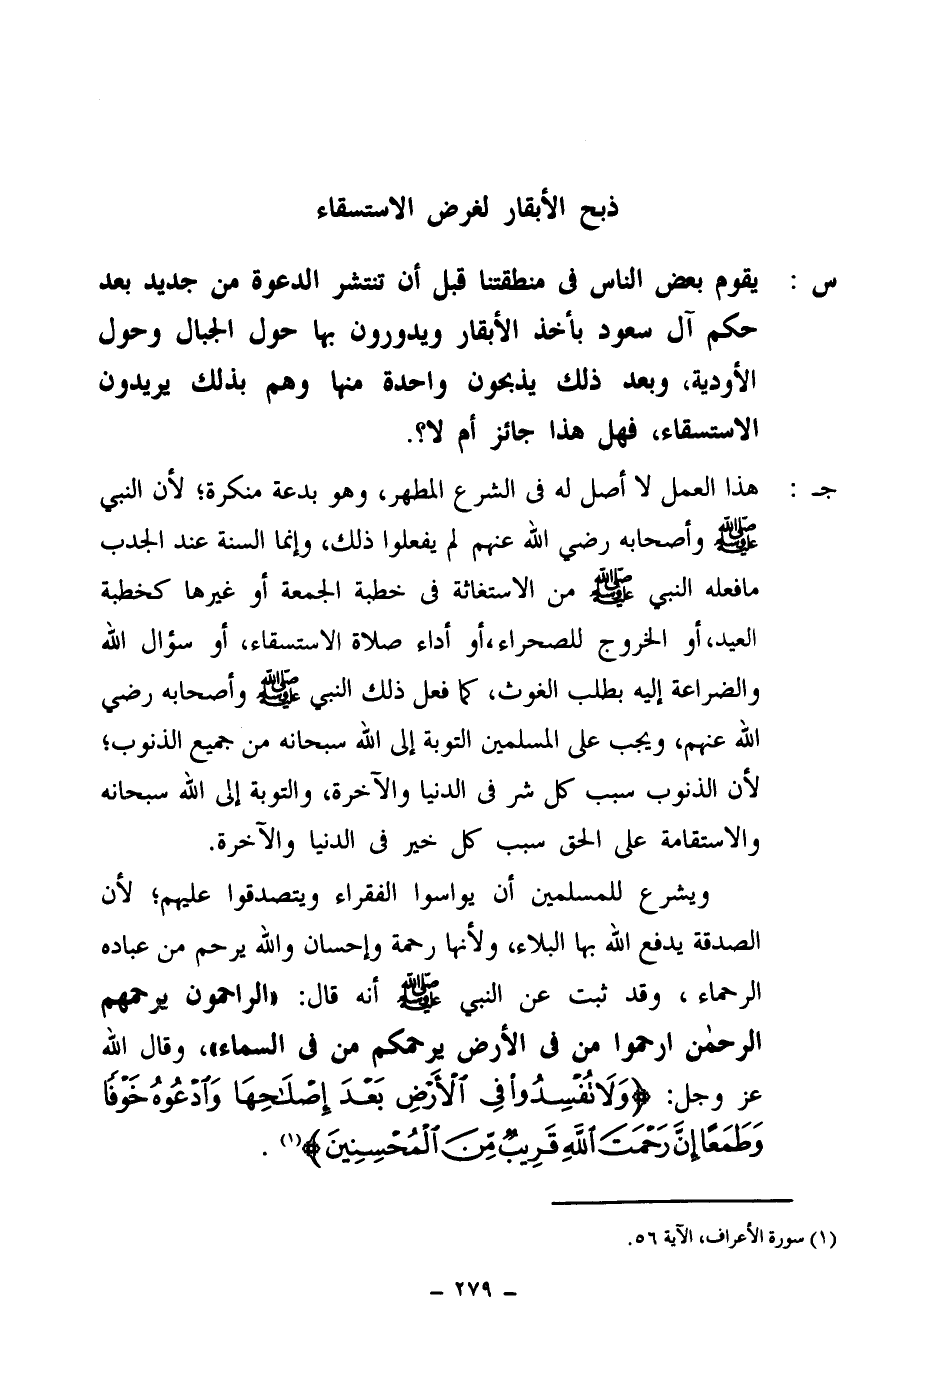 ذبح الأبقار لغرض الاستسقاء
س : يقوم بعض الناس فى منطقتنا قبل أن تنتشر الدعوة من جديد بعد
حكم آل سعود بأخذ الأبقار ويدورون بها حول الجبال وحول
الأودية، وبعد ذلك يذبحون واحدة منها وهم بذلك يريدون
الاستسقاء، فهل هذا جائز أم لا؟.
جـ : هذا العمل لا أصل له فى الشرع المطهر، وهو بدعة منكرة؛ لأن النبي
ﷺ وأصحابه رضي الله عنهم لم يفعلوا ذلك، وإنما السنة عند الجدب
مافعله النبي ﷺ من الاستغاثة فى خطبة الجمعة أو غيرها كخطبة
العيد،أو الخروج للصحراء،أو أداء صلاة الاستسقاء، أو سؤال الله
والضراعة إليه بطلب الغوث، كما فعل ذلك النبي ﷺ وأصحابه رضي
الله عنهم، ويجب على المسلمين التوبة إلى الله سبحانه من جميع الذنوب؛
لأن الذنوب سبب كل شر فى الدنيا والآخرة، والتوبة إلى الله سبحانه
والاستقامة على الحق سبب كل خير فى الدنيا والآخرة.
ويشرع للمسلمين أن يواسوا الفقراء ويتصدقوا عليهم؛ لأن
الصدقة يدفع الله بها البلاء، ولأنها رحمة وإحسان والله يرحم من عباده
الرحماء ، وقد ثبت عن النبي ﷺ أنه قال: «الراحمون يرحمهم
الرحمٰن ارحموا من فى الأرض يرحمكم من فى السماء»، وقال الله
عز وجل: ﴿وَلَا تُفْسِدُوا۟ فِى ٱلْأَرْضِ بَعْدَ إِصْلَٰحِهَا وَٱدْعُوهُ خَوْفًا
وَطَمَعًا إِنَّ رَحْمَتَ ٱللَّهِ قَرِيبٌ مِّنَ ٱلْمُحْسِنِينَ﴾(١) .
(١) سورة الأعراف، الآية ٥٦.
– ٢٧٩ –